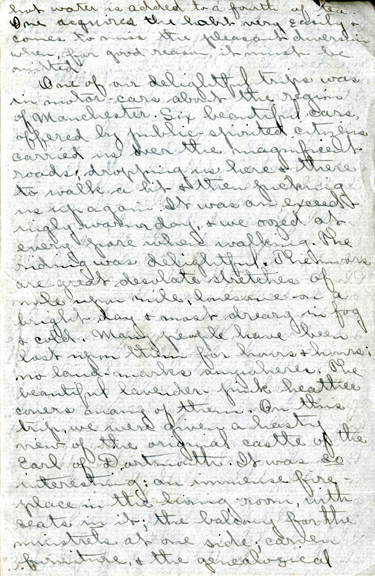 hot water is added to a fourth of tea.
One acquires the habit very easily &
comes to miss the pleasant diversion
when, for good reason it must be
omitted.
One of our delightful trips was
in motor-cars about the region
of Manchester. Six beautiful cars,
offered by public-spirited citizens
carried us over the magnificent
roads; dropping us here & there
to walk a bit & then picking
us up again. It was an exceed-
ingly warm day, & we oozed at
every pore when walking. The
riding was delightful. The moors
are great desolate stretches of
mile upon mile, lonesome on a
bright day & most dreary in fog
& cold. Many people have been
lost upon them for hours & hours;
no land-marks anywheres. The
beautiful lavender-pink heather
covers many of them. On this
trip, we were given a hasty
view of the original castle of the
Earl of Dartmouth. It was so
interesting: an immense fire
place in the living-room, with
seats in it; the balcony for the
minstrels at one side; carven
furniture, & the genealogical